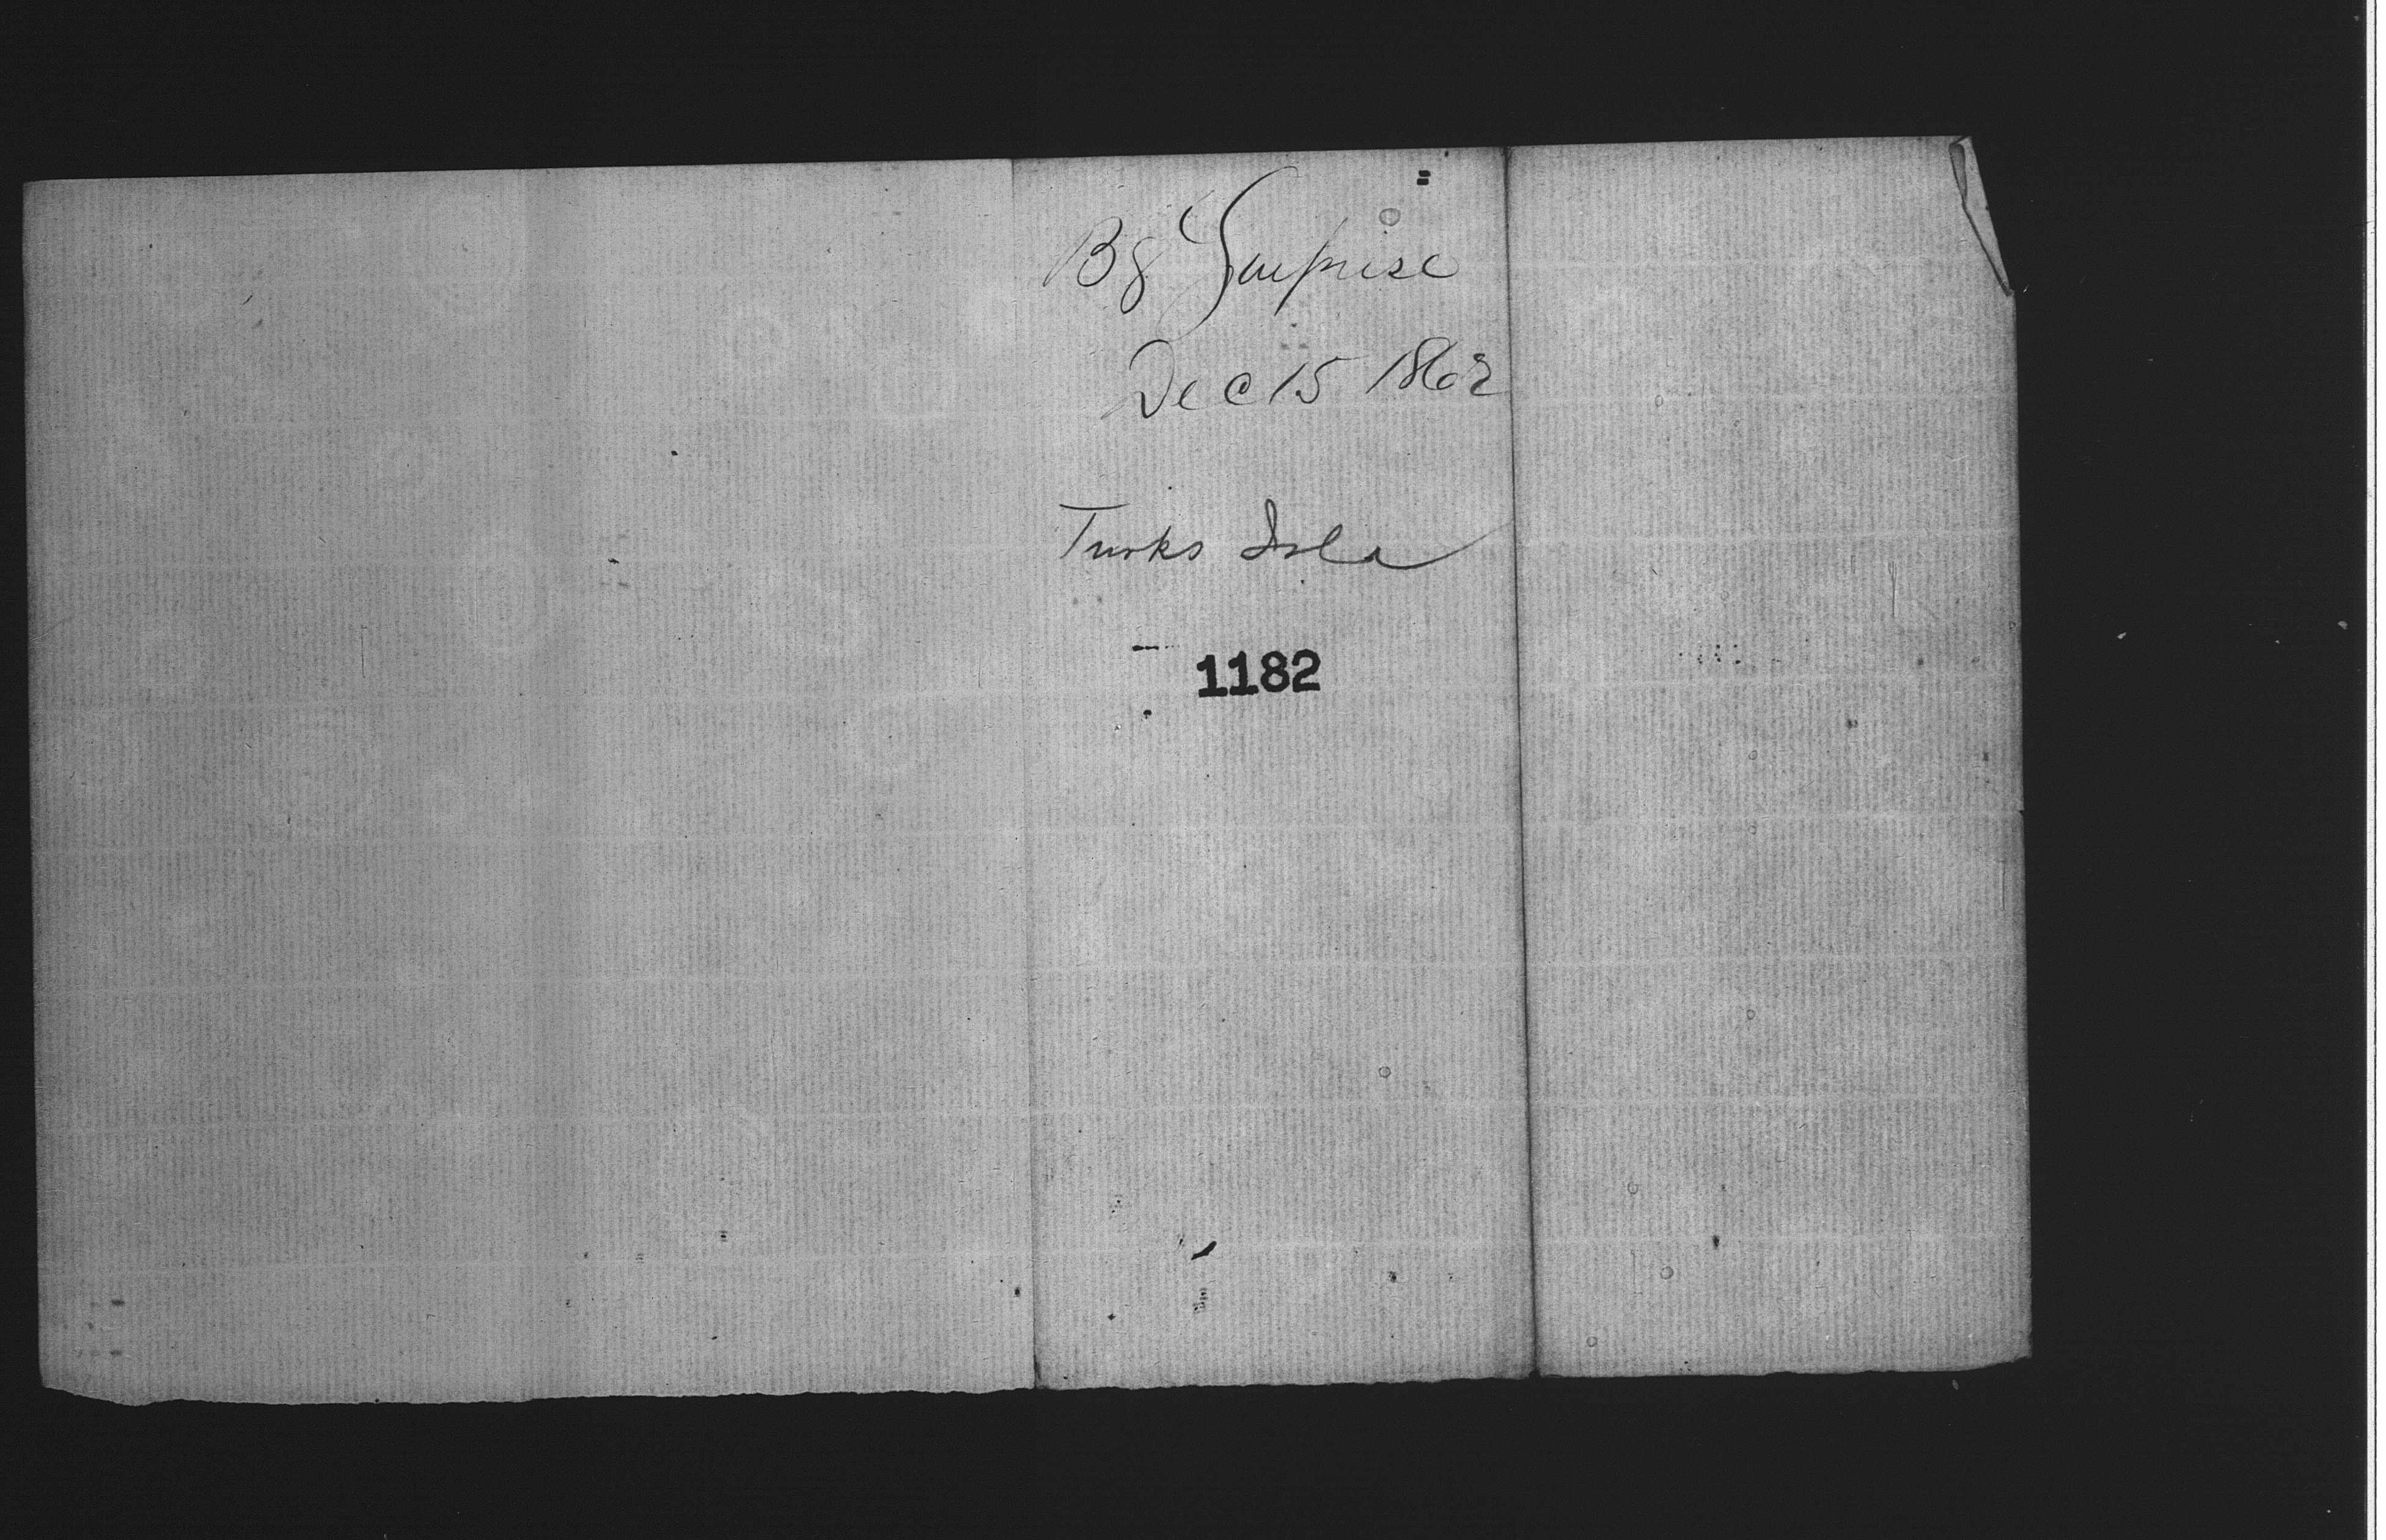 Bg Surprise
Dec 15 1862
Turks Isla
1182